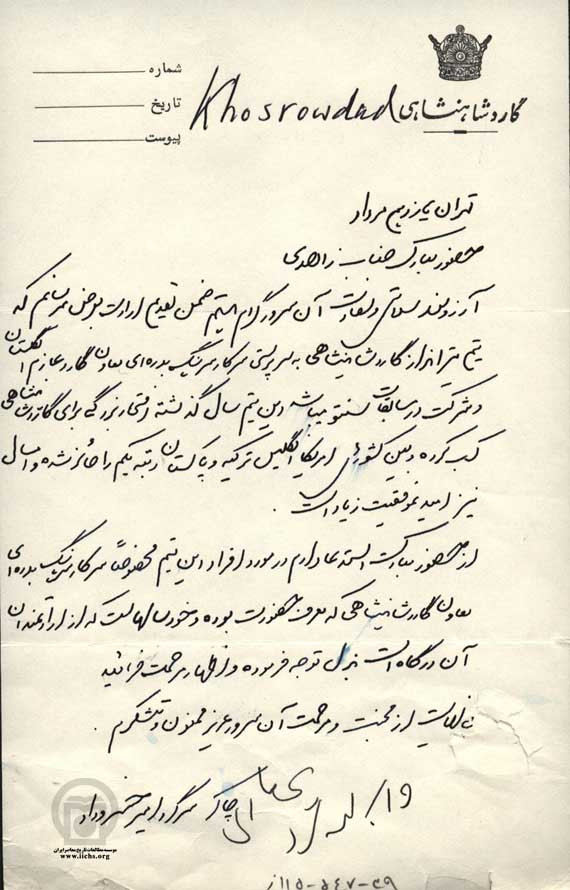 شماره
تاریخ
پیوست
گارد شاهنشاهی Khosrowdad
تهران یازدهم مرداد
حضور مبارک جناب زاهدی
آرزومند سلامتی و سعادت آن سرور گرام هستم ضمن تقدیم ارادت بعرض میرسانم که
تیم تیراندازی گارد شاهنشاهی به سرپرستی سرکار سرهنگ بدره‌ای معاون گارد عازم انگلستان
و شرکت در مسابقات سنتو میباشد این تیم سال گذشته افتخار بزرگی برای گارد شاهنشاهی
کسب کرده و بین کشورهای امریکا انگلیس ترکیه و پاکستان رتبه یکم را حائز شده و امسال
نیز امید موفقیت زیاد است.
از حضور مبارکت استدعا دارم در مورد افراد این تیم مخصوصاً سرکار سرهنگ بدره‌ای
معاون گارد شاهنشاهی که معرف حضورت بوده و خود سالهاست که از ارادتمندان
آن درگاه است بذل توجه فرموده و اظهار مرحمت فرمائید
نهایت از محبت و مرحمت آن سرور عزیز ممنون و متشکرم.
چاکر سرگرد امیر خسروداد
موسسه مطالعات تاریخ معاصر ایران
www.iichs.org